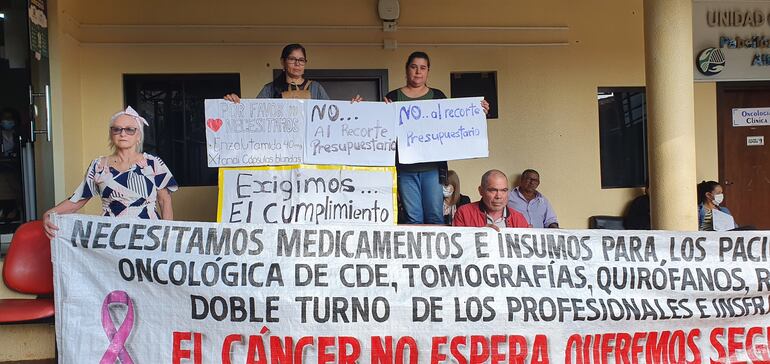 UNIDAD
Oncología
Clínica
POR FAVOR
NECESITAMOS
Enzalutamida 40 mg
Xtandi Cápsulas blandas
NO...
Al Recorte
Presupuestario
NO..al recorte
Presupuestario
Exigimos...
El cumplimiento
NECESITAMOS MEDICAMENTOS E INSUMOS PARA LOS PAC
ONCOLÓGICA DE CDE, TOMOGRAFÍAS, QUIRÓFANOS, R
DOBLE TURNO DE LOS PROFESIONALES E INSFR
EL CÁNCER NO ESPERA QUEREMOS SEG